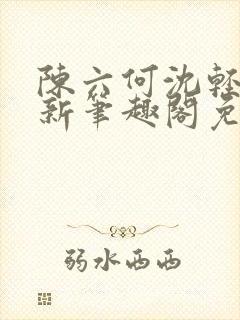 陳六何沈輕
新筆趣閣免
弱水西西